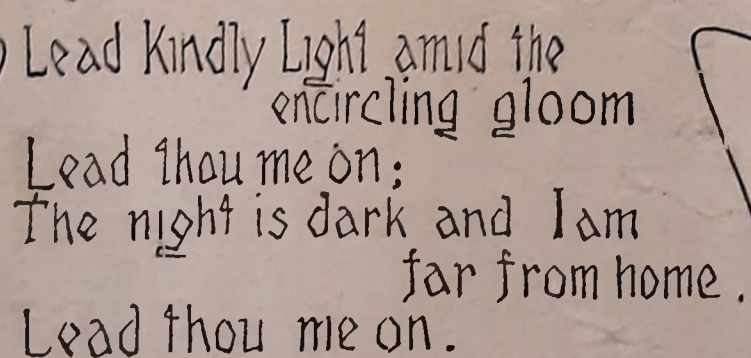 Lead Kindly Light amid the
encircling gloom
Lead thou me on;
The night is dark and I am
far from home.
Lead thou me on.